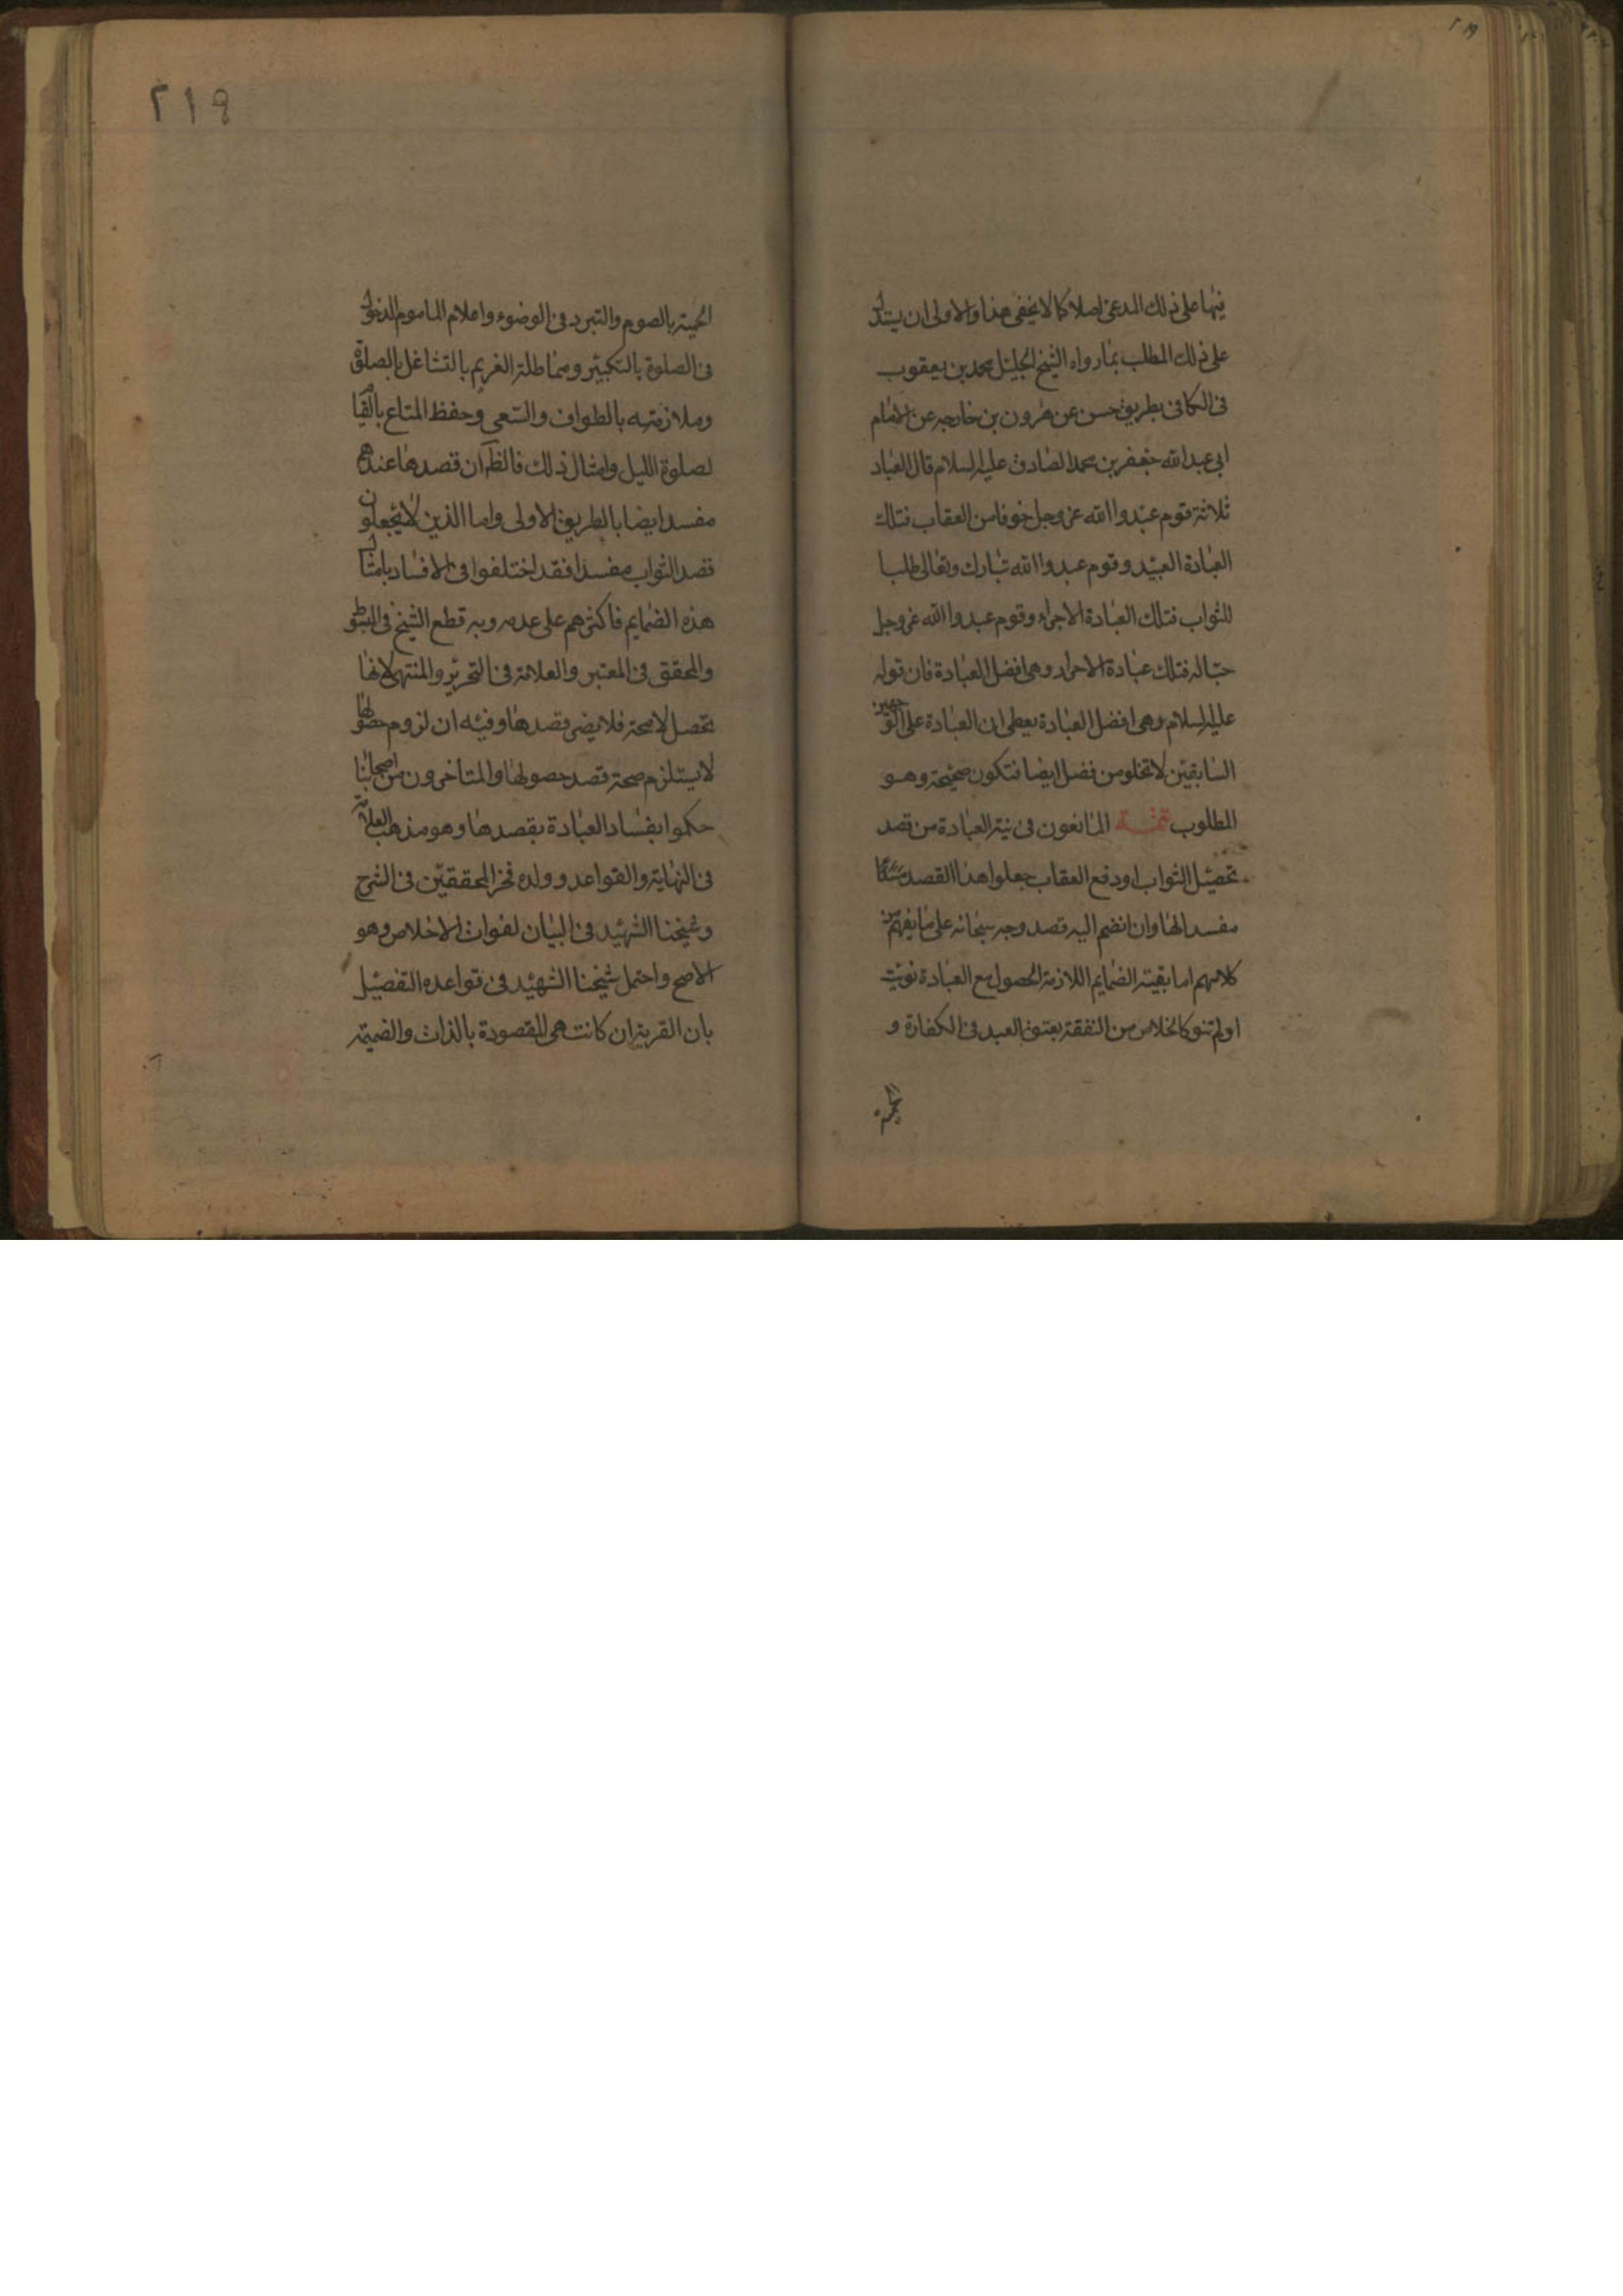 ٢١٩
فيها على ذلك المدعى اصلا كما لا يخفى هذا والاولى ان يستدل
على ذلك المطلب بما رواه الشيخ الجليل محمد بن يعقوب
فى الكافى بطريق حسن عن هرون بن خارجه عن الامام
ابى عبدالله جعفر بن محمد الصادق عليه السلام قال العباد
ثلاثة قوم عبدوا الله عز وجل خوفا من العقاب فتلك
العبادة العبيد وقوم عبدوا الله تبارك وتعالى طلبا
للثواب فتلك العبادة الاجراء وقوم عبدوا الله عز وجل
حبا له فتلك عبادة الاحرار وهى افضل العبادة فان قوله
عليه السلام وهى افضل العبادة يعطى ان العبادة على الوجهين
السابقين لا تخلو من فضل ايضا فتكون صحيحة وهو
المطلوب تتمة المانعون فى نية العبادة من قصد
تحصيل الثواب او دفع العقاب جعلوا هذا القصد
مفسدا لها وان انضم اليه قصد وجه سبحانه على ما يفهم من
كلامهم اما بقية الضمايم اللازمة الحصول مع العبادة نويت
او لم تنو كالخلاص من النفقة بعتق العبد فى الكفارة و
الحمية
٢١٩
الحمية بالصوم والتبرد فى الوضوء واعلام الماموم الدخول
فى الصلوة بالتكبير ومماطلة الغريم بالتشاغل بالصلوة
وملازمته بالطواف والسعى وحفظ المتاع بالقيام
لصلوة الليل وامثال ذلك فالظاهر ان قصدها عندهم
مفسد ايضا بالطريق الاولى واما الذين لا يجعلون
قصد الثواب مفسدا فقد اختلفوا فى الافساد بامثال
هذه الضمايم فاكثرهم على عدمه وبه قطع الشيخ فى المبسوط
والمحقق فى المعتبر والعلامة فى التحرير والمنتهى لانها
تحصل لا محة فلا يضر قصدها وفيه ان لزوم حصولها
لا يستلزم صحة قصد حصولها والمتاخرون من اصحابنا
حكموا بفساد العبادة بقصدها وهو مذهب العلامة
فى النهاية والقواعد وولده فخر المحققين فى الشرح
وشيخنا الشهيد فى البيان لفوات الاخلاص وهو
الاصح واحتمل شيخنا الشهيد فى قواعده التفصيل
بان القربة ان كانت هى المقصودة بالذات والضميمة